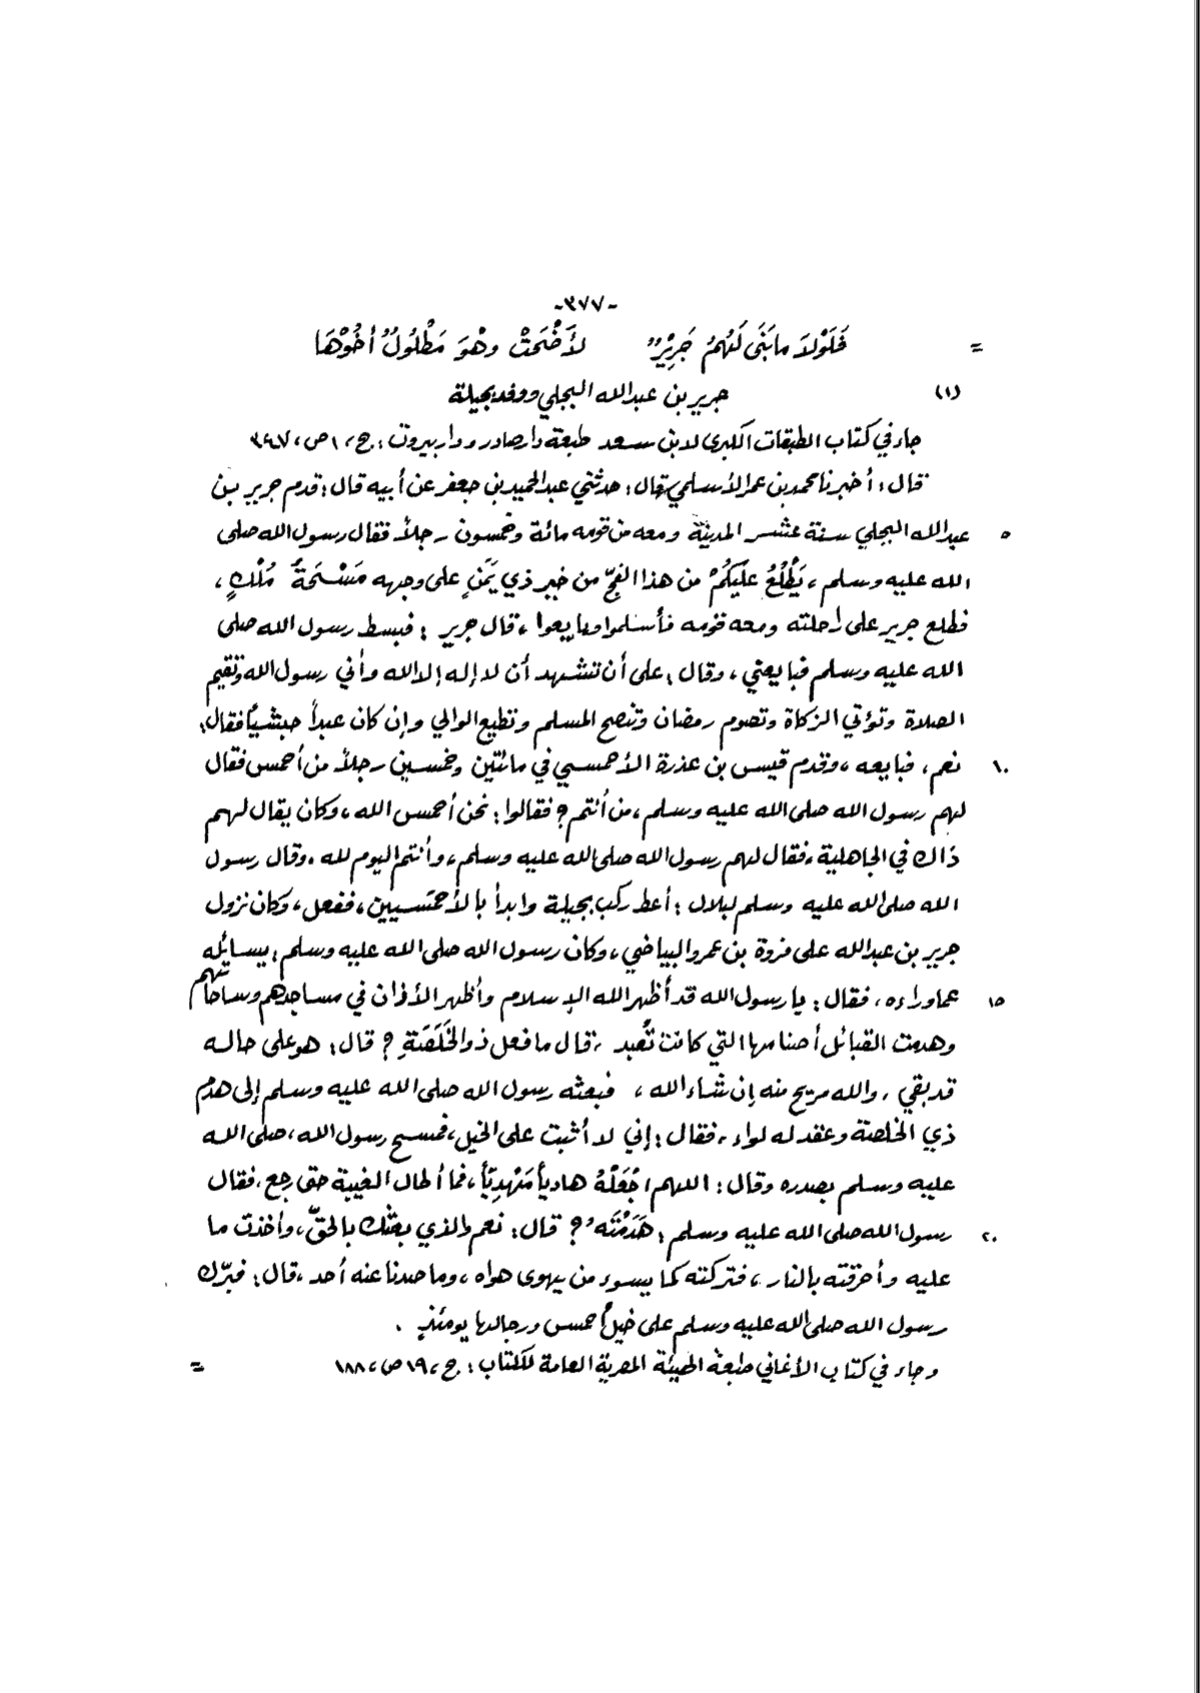 -٣٧٧-
= فَلَوْلاَ ما بَنَى لَهُمُ جَرِيْرٌ لأَضْحَتْ وهْوَ مَطْلُولٌ أخُوْهَا
(١) جرير بن عبدالله البجلي ووفد بجيلة
جاء في كتاب الطبقات الكبرى لابن سعد طبعة دار صادر ودار بيروت: ج، ١ ص، ٣٤٧
قال: أخبرنا محمد بن عمر الأسلمي قال: حدثني عبدالحميد بن جعفر عن أبيه قال: قدم جرير بن
٥ عبدالله البجلي سنة عشر المدينة ومعه من قومه مائة وخمسون رجلاً فقال رسول الله صلى
الله عليه وسلم، يَطْلُعُ عَلَيكُمْ من هذا الفجّ من خير ذي يَمَنٍ على وجهه مَسْحَةُ مُلْكٍ،
فطلع جرير على راحلته ومعه قومه فأسلموا وبايعوا، قال جرير: فبسط رسول الله صلى
الله عليه وسلم فبايعني، وقال: على أن تشهد أن لا إله إلا الله وأني رسول الله وتقيم
الصلاة وتؤتي الزكاة وتصوم رمضان وتنصح المسلم وتطيع الوالي وإن كان عبداً حبشياً فقال:
١٠ نعم، فبايعه، وقدم قيس بن عذرة الأحمسي في مائتين وخمسين رجلاً من أحمس فقال
لهم رسول الله صلى الله عليه وسلم، من أنتم؟ فقالوا: نحن أحمس الله، وكان يقال لهم
ذاك في الجاهلية، فقال لهم رسول الله صلى الله عليه وسلم، وأنتم اليوم لله، وقال رسول
الله صلى الله عليه وسلم لبلال: أعط ركب بجيلة وابدأ بالأحمسيين، ففعل، وكان نزول
جرير بن عبدالله على فروة بن عمرو البياضي، وكان رسول الله صلى الله عليه وسلم: يسائله
١٥ عما وراءه، فقال: يا رسول الله قد أظهر الله الإسلام وأظهر الأذان في مساجدهم وساحاتهم
وهدمت القبائل أصنامها التي كانت تُعبد، قال ما فعل ذو الخَلَصَةِ؟ قال: هو على حاله
قد بقي، والله مريح منه إن شاء الله، فبعثه رسول الله صلى الله عليه وسلم إلى هدم
ذي الخلصة وعقد له لواء، فقال: إني لا أثبت على الخيل، فمسح رسول الله، صلى الله
عليه وسلم بصدره وقال: اللهم اجْعَلْهُ هادياً مَهْدِيّاً، فما أطال الغيبة حتى رجع، فقال
٢٠ رسول الله صلى الله عليه وسلم: هَدَمْتَه؟ قال: نعم والذي بعثك بالحقّ، وأخذت ما
عليه وأحرقته بالنار، فتركته كما يسوء من يهوى هواه، وما صدنا عنه أحد، قال: فبرّك
رسول الله صلى الله عليه وسلم على خيل أحمس ورجالها يومئذٍ.
وجاء في كتاب الأغاني طبعة الهيئة المصرية العامة للكتاب: ج، ١٩ ص، ١٨٨ =